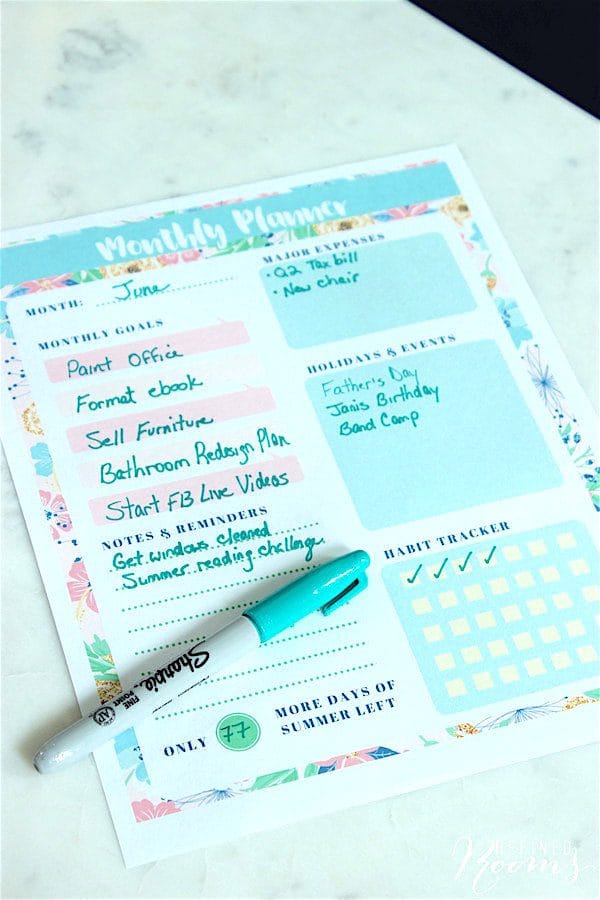 Monthly Planner
MONTH: June
MONTHLY GOALS
Paint Office
Format ebook
Sell Furniture
Bathroom Redesign Plan
Start FB Live Videos
NOTES & REMINDERS
Get windows cleaned
Summer reading challenge
MAJOR EXPENSES
• Q2 Tax bill
• New chair
HOLIDAYS & EVENTS
Father's Day
Janis Birthday
Band Camp
HABIT TRACKER
✓ ✓ ✓ ✓
ONLY 77 MORE DAYS OF
SUMMER LEFT
Sharpie
FINE
POINT
AP
REFINED
Rooms